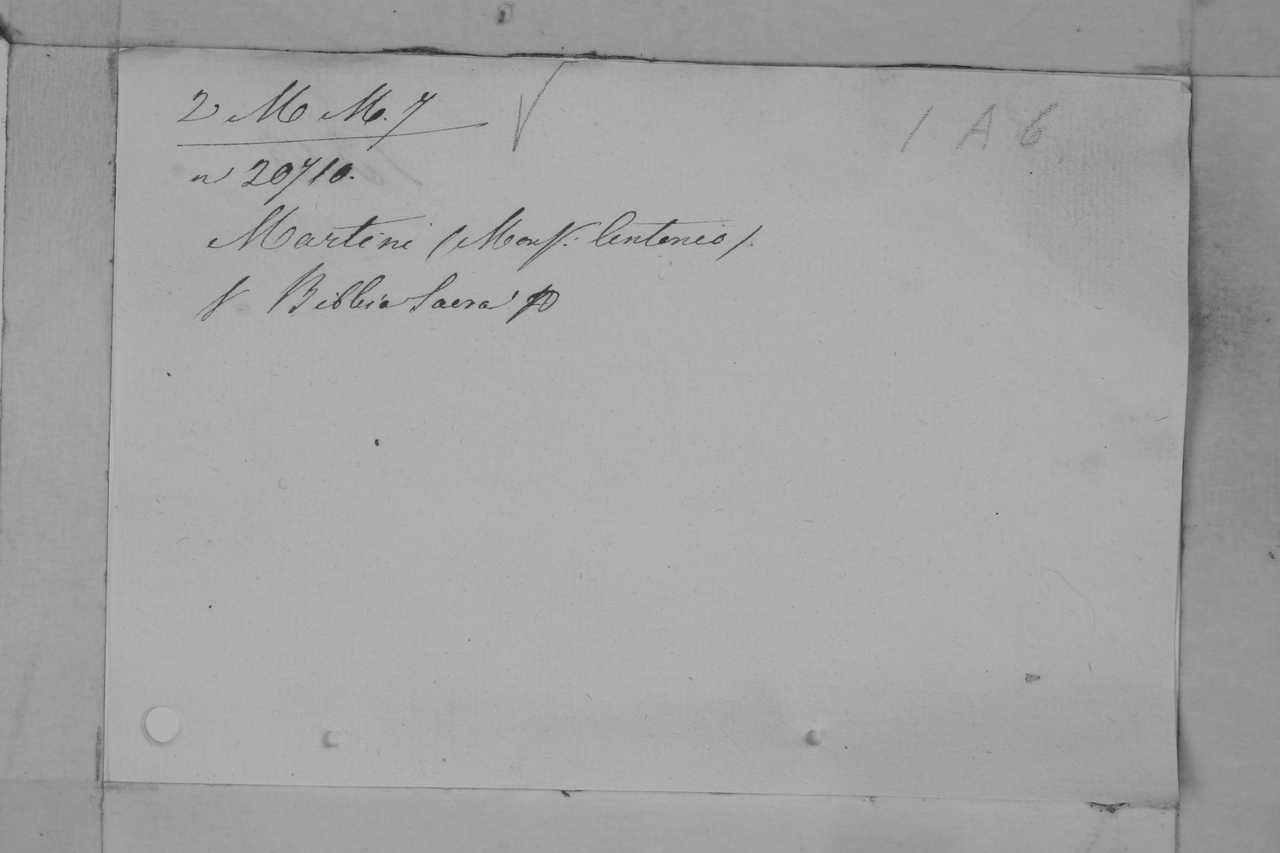 2 M M. 7 1 A 6
n 20710.
Martini (Mons.: Antonio).
V Bibbia Sacra